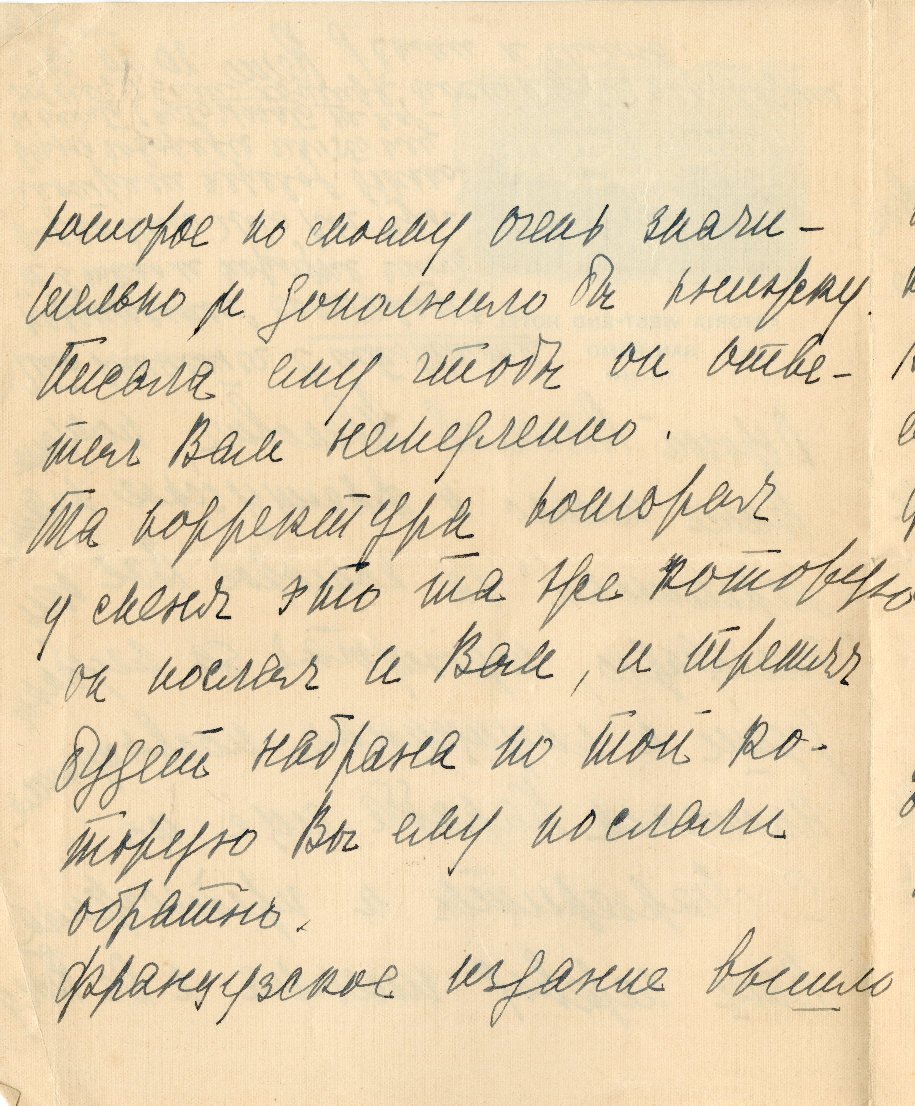 которое по моему очень значи-
тельно и дополнило бы книжку.
Писала ему чтобы он отве-
тил Вам немедленно.
Та корректура которая
у меня это та же которую
он послал и Вам, и третья
будет набрана по той ко-
торую Вы ему послали
обратно.
Французское издание вышло